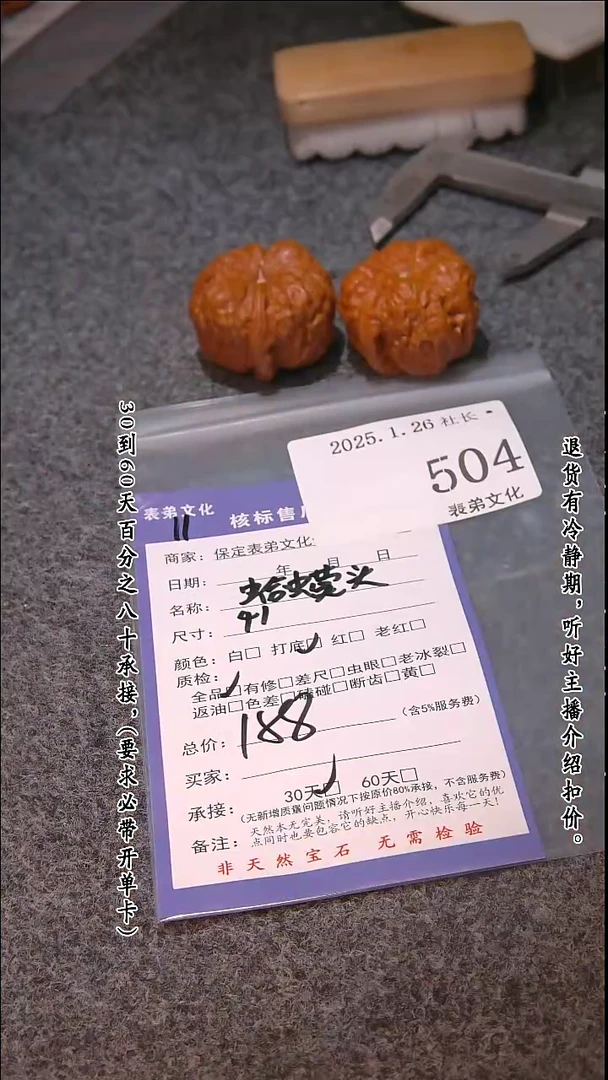 30到60天百分之八十承接，（要求必带开单卡）
退货有冷静期，听好主播介绍扣价。
2025.1.26 社长
504
表弟文化
表弟文化
核标售后
11
商家：保定表弟文化
日期：年 月 日
名称：蛤蟆头
尺寸：41
颜色：白□ 打底☑ 红□ 老红□
质检：
全品☑有修□差尺□虫眼□老冰裂□
返油□色差□磕碰□断齿□黄□
总价：188（含5%服务费）
买家：
30天☑ 60天□
承接：（无新增质量问题情况下按原价80%承接，不含服务费）
天然本无完美，请听好主播介绍，喜欢它的优
备注：点同时也要包容它的缺点，开心快乐每一天！
非天然宝石 无需检验